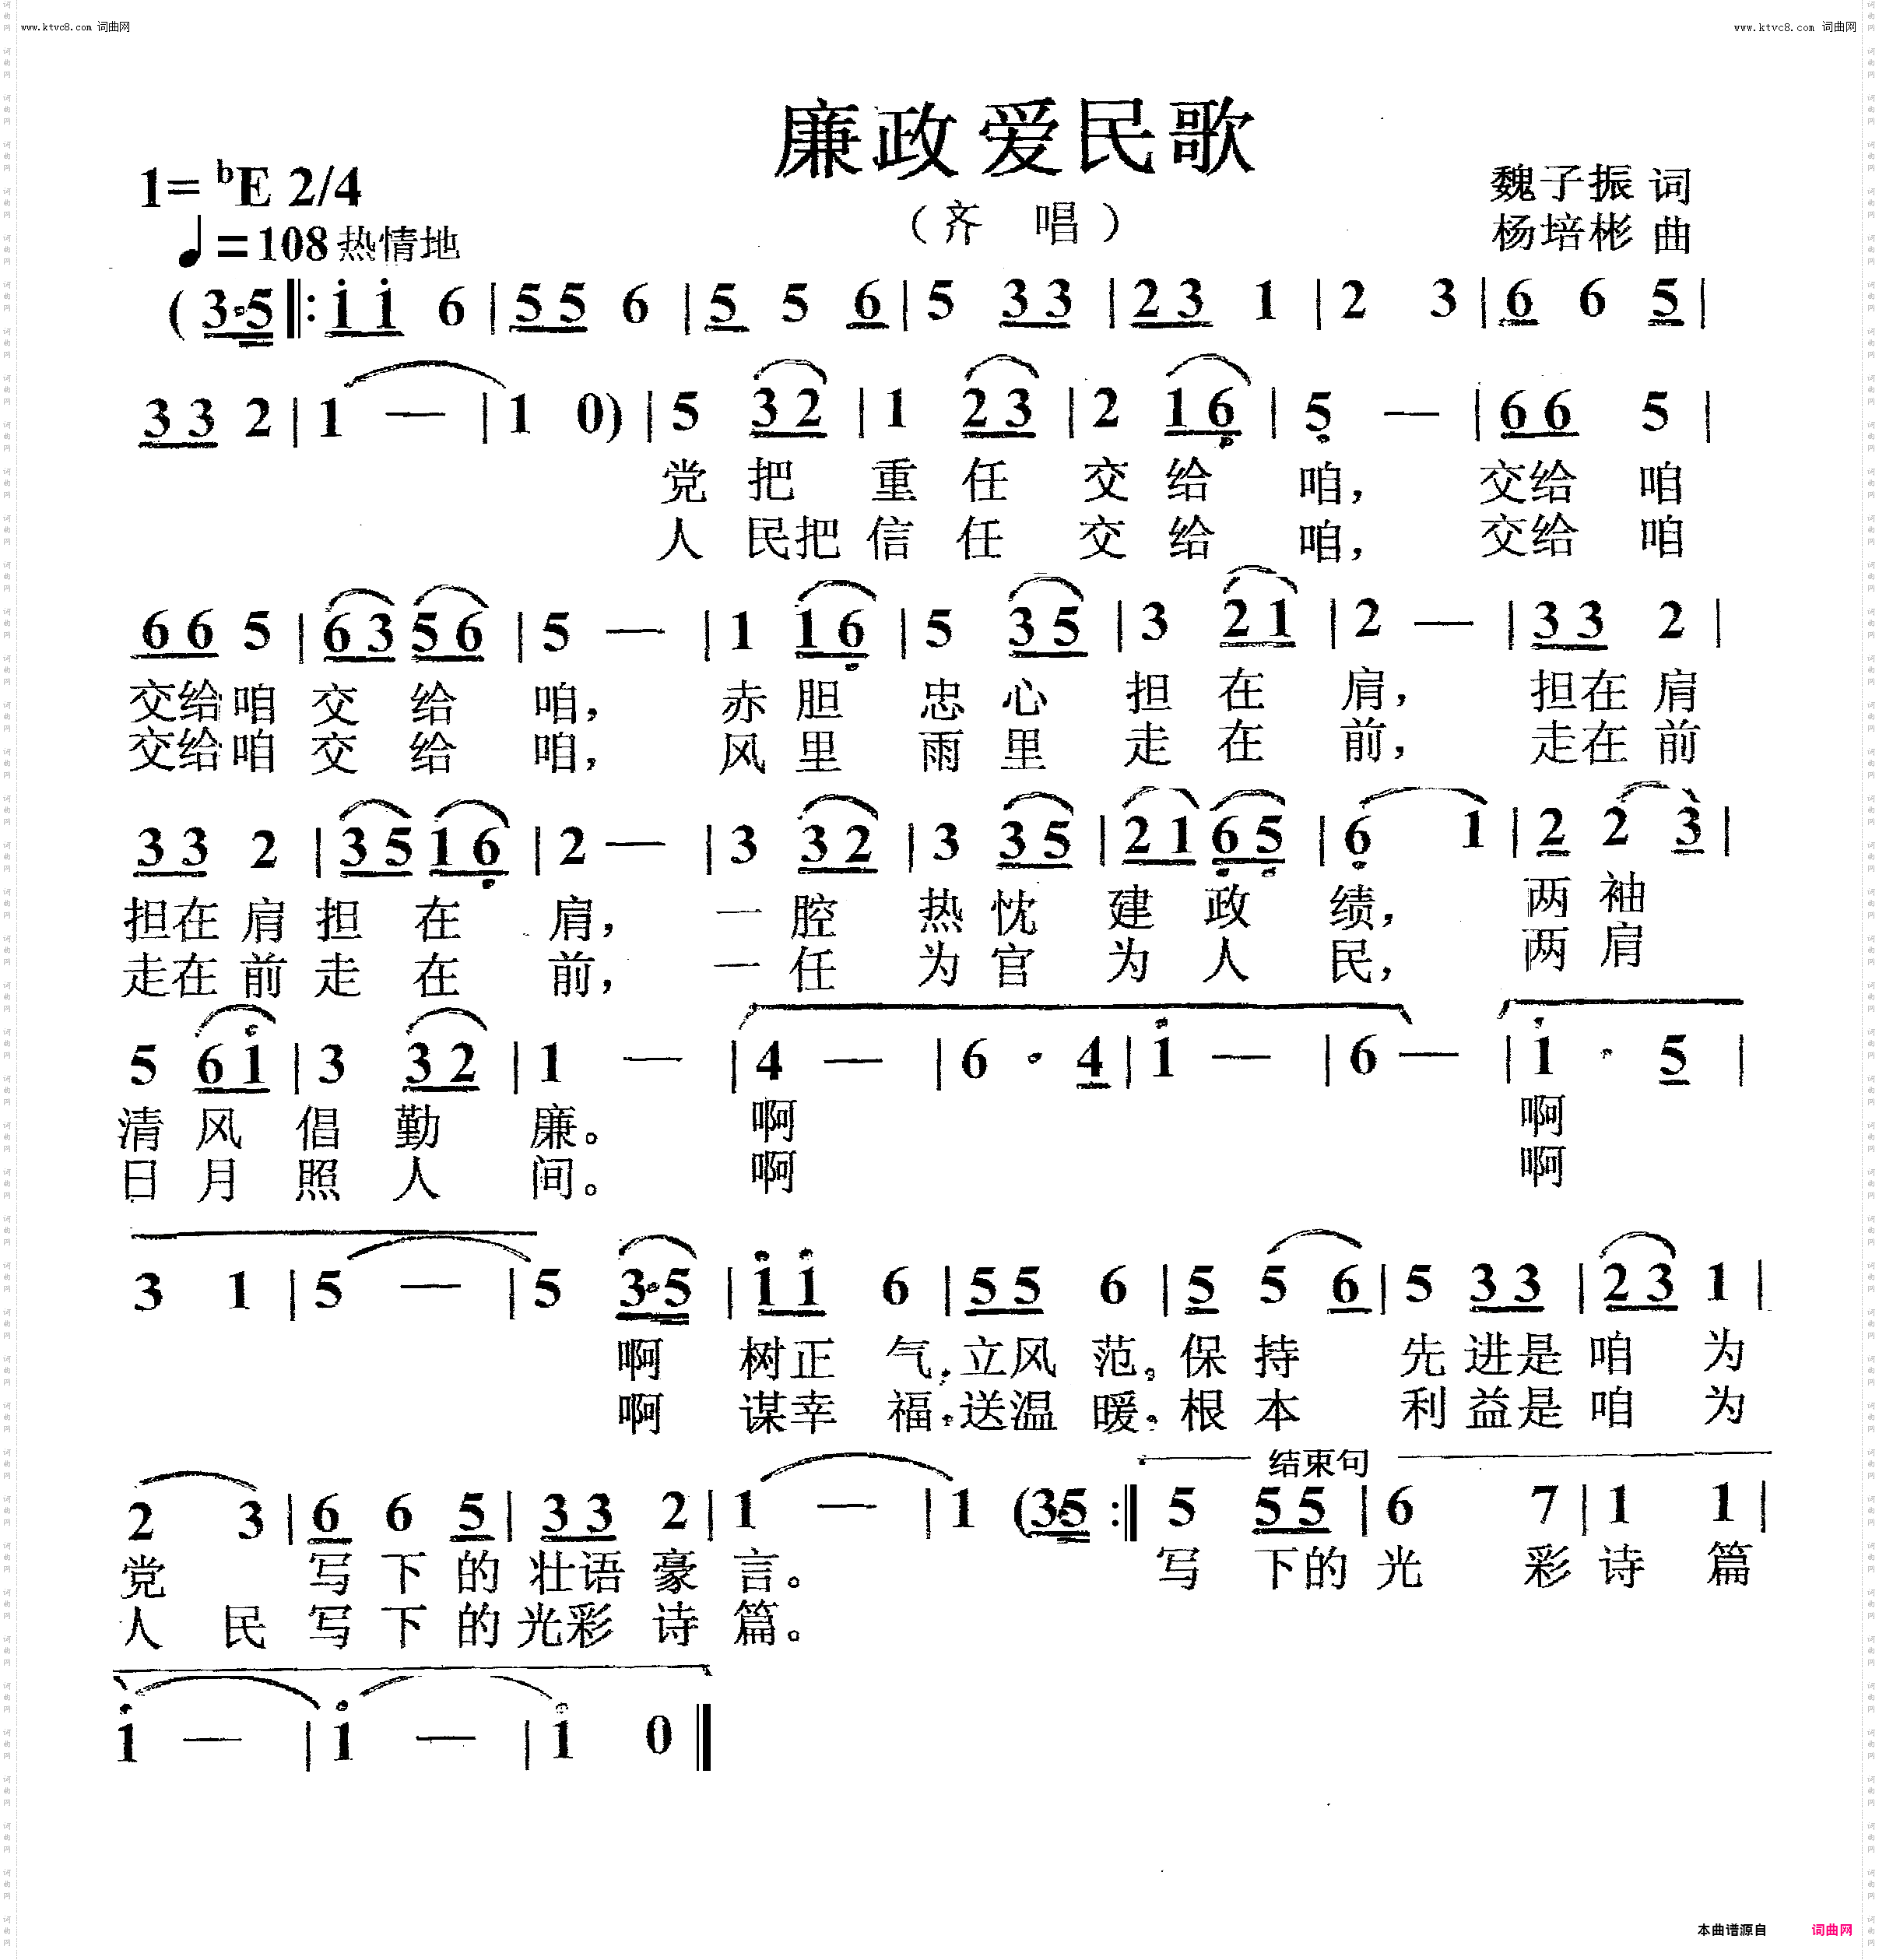 www.ktvc8.com 词曲网
www.ktvc8.com 词曲网
廉政爱民歌
1= ᵇE 2/4
魏子振 词
（齐 唱）
杨培彬 曲
♩=108 热情地
(3·5 ‖: i i 6 | 5 5 6 | 5 5 6 | 5 3 3 | 2 3 1 | 2 3 | 6 6 5 |
3 3 2 | 1 — | 1 0) | 5 3 2 | 1 2 3 | 2 1 6 | 5 — | 6 6 5 |
党 把 重 任 交 给 咱， 交给 咱
人 民把 信 任 交 给 咱， 交给 咱
6 6 5 | 6 3 5 6 | 5 — | 1 1 6 | 5 3 5 | 3 2 1 | 2 — | 3 3 2 |
交给咱 交 给 咱， 赤 胆 忠 心 担 在 肩， 担在 肩
交给咱 交 给 咱， 风 里 雨 里 走 在 前， 走在 前
3 3 2 | 3 5 1 6 | 2 — | 3 3 2 | 3 3 5 | 2 1 6 5 | 6 1 | 2 2 3 |
担在 肩 担 在 肩， 一 腔 热 忱 建 政 绩， 两 袖
走在 前 走 在 前， 一 任 为 官 为 人 民， 两 肩
5 6 i | 3 3 2 | 1 — | 4 — | 6 · 4 | i — | 6 — | i · 5 |
清 风 倡 勤 廉。 啊 啊
日 月 照 人 间。 啊 啊
3 1 | 5 — | 5 3·5 | i i 6 | 5 5 6 | 5 5 6 | 5 3 3 | 2 3 1 |
啊 树正 气，立风 范，保 持 先 进是 咱 为
啊 谋幸 福，送温 暖，根 本 利 益是 咱 为
2 3 | 6 6 5 | 3 3 2 | 1 — | 1 (3·5 :‖ 结束句 5 5 5 | 6 7 | 1 1 |
党 写 下 的 壮语 豪 言。 写 下的 光 彩 诗 篇
人 民 写 下 的 光彩 诗 篇。
i — | i — | i 0 ‖
本曲谱源自 词曲网